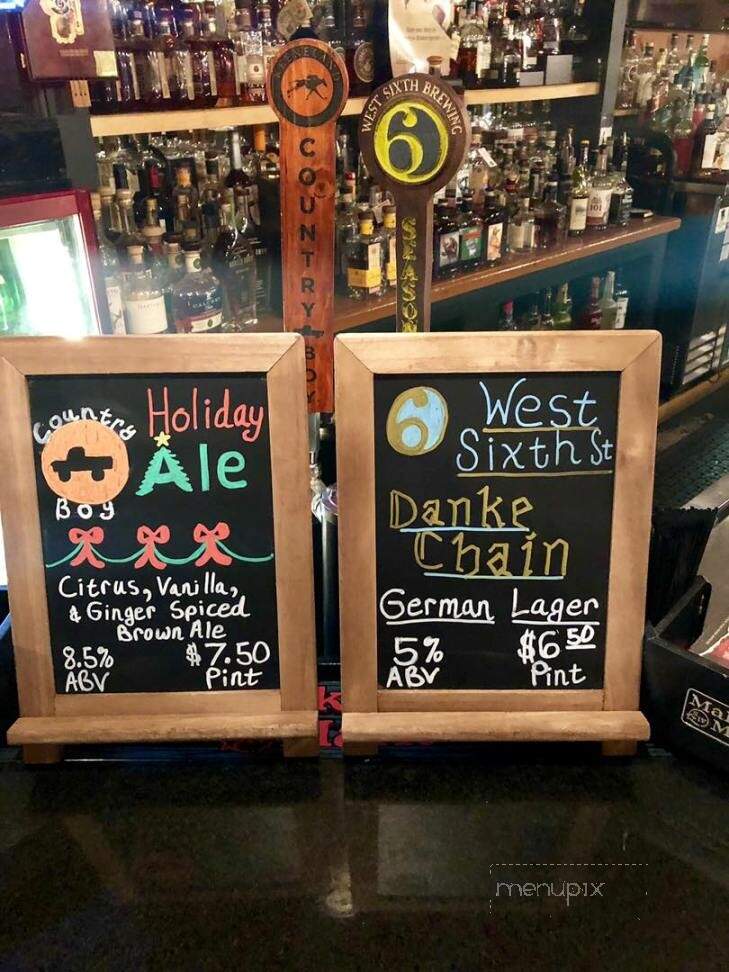 COUNTRY BOY
WEST SIXTH BREWING
6
SEASON
Country
Boy
Holiday
Ale
Citrus, Vanilla,
& Ginger Spiced
Brown Ale
8.5%
ABV
$7.50
Pint
6
West
Sixth St
Danke
Chain
German Lager
5%
ABV
$6 50
Pint
menupix